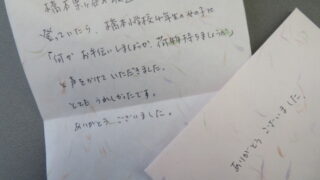 登っていたら、橋本小学校4年生の女の子に
「何かお手伝いしましょうか、荷物持ちましょうか」
と声をかけていただきました。
とても うれしかったです。
ありがとう ございました。
ありがとう ございました。